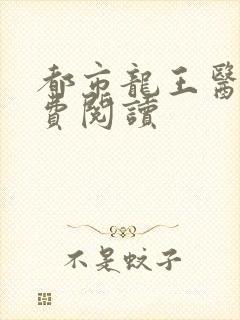 都市龍王醫
費閱讀
不是蚊子